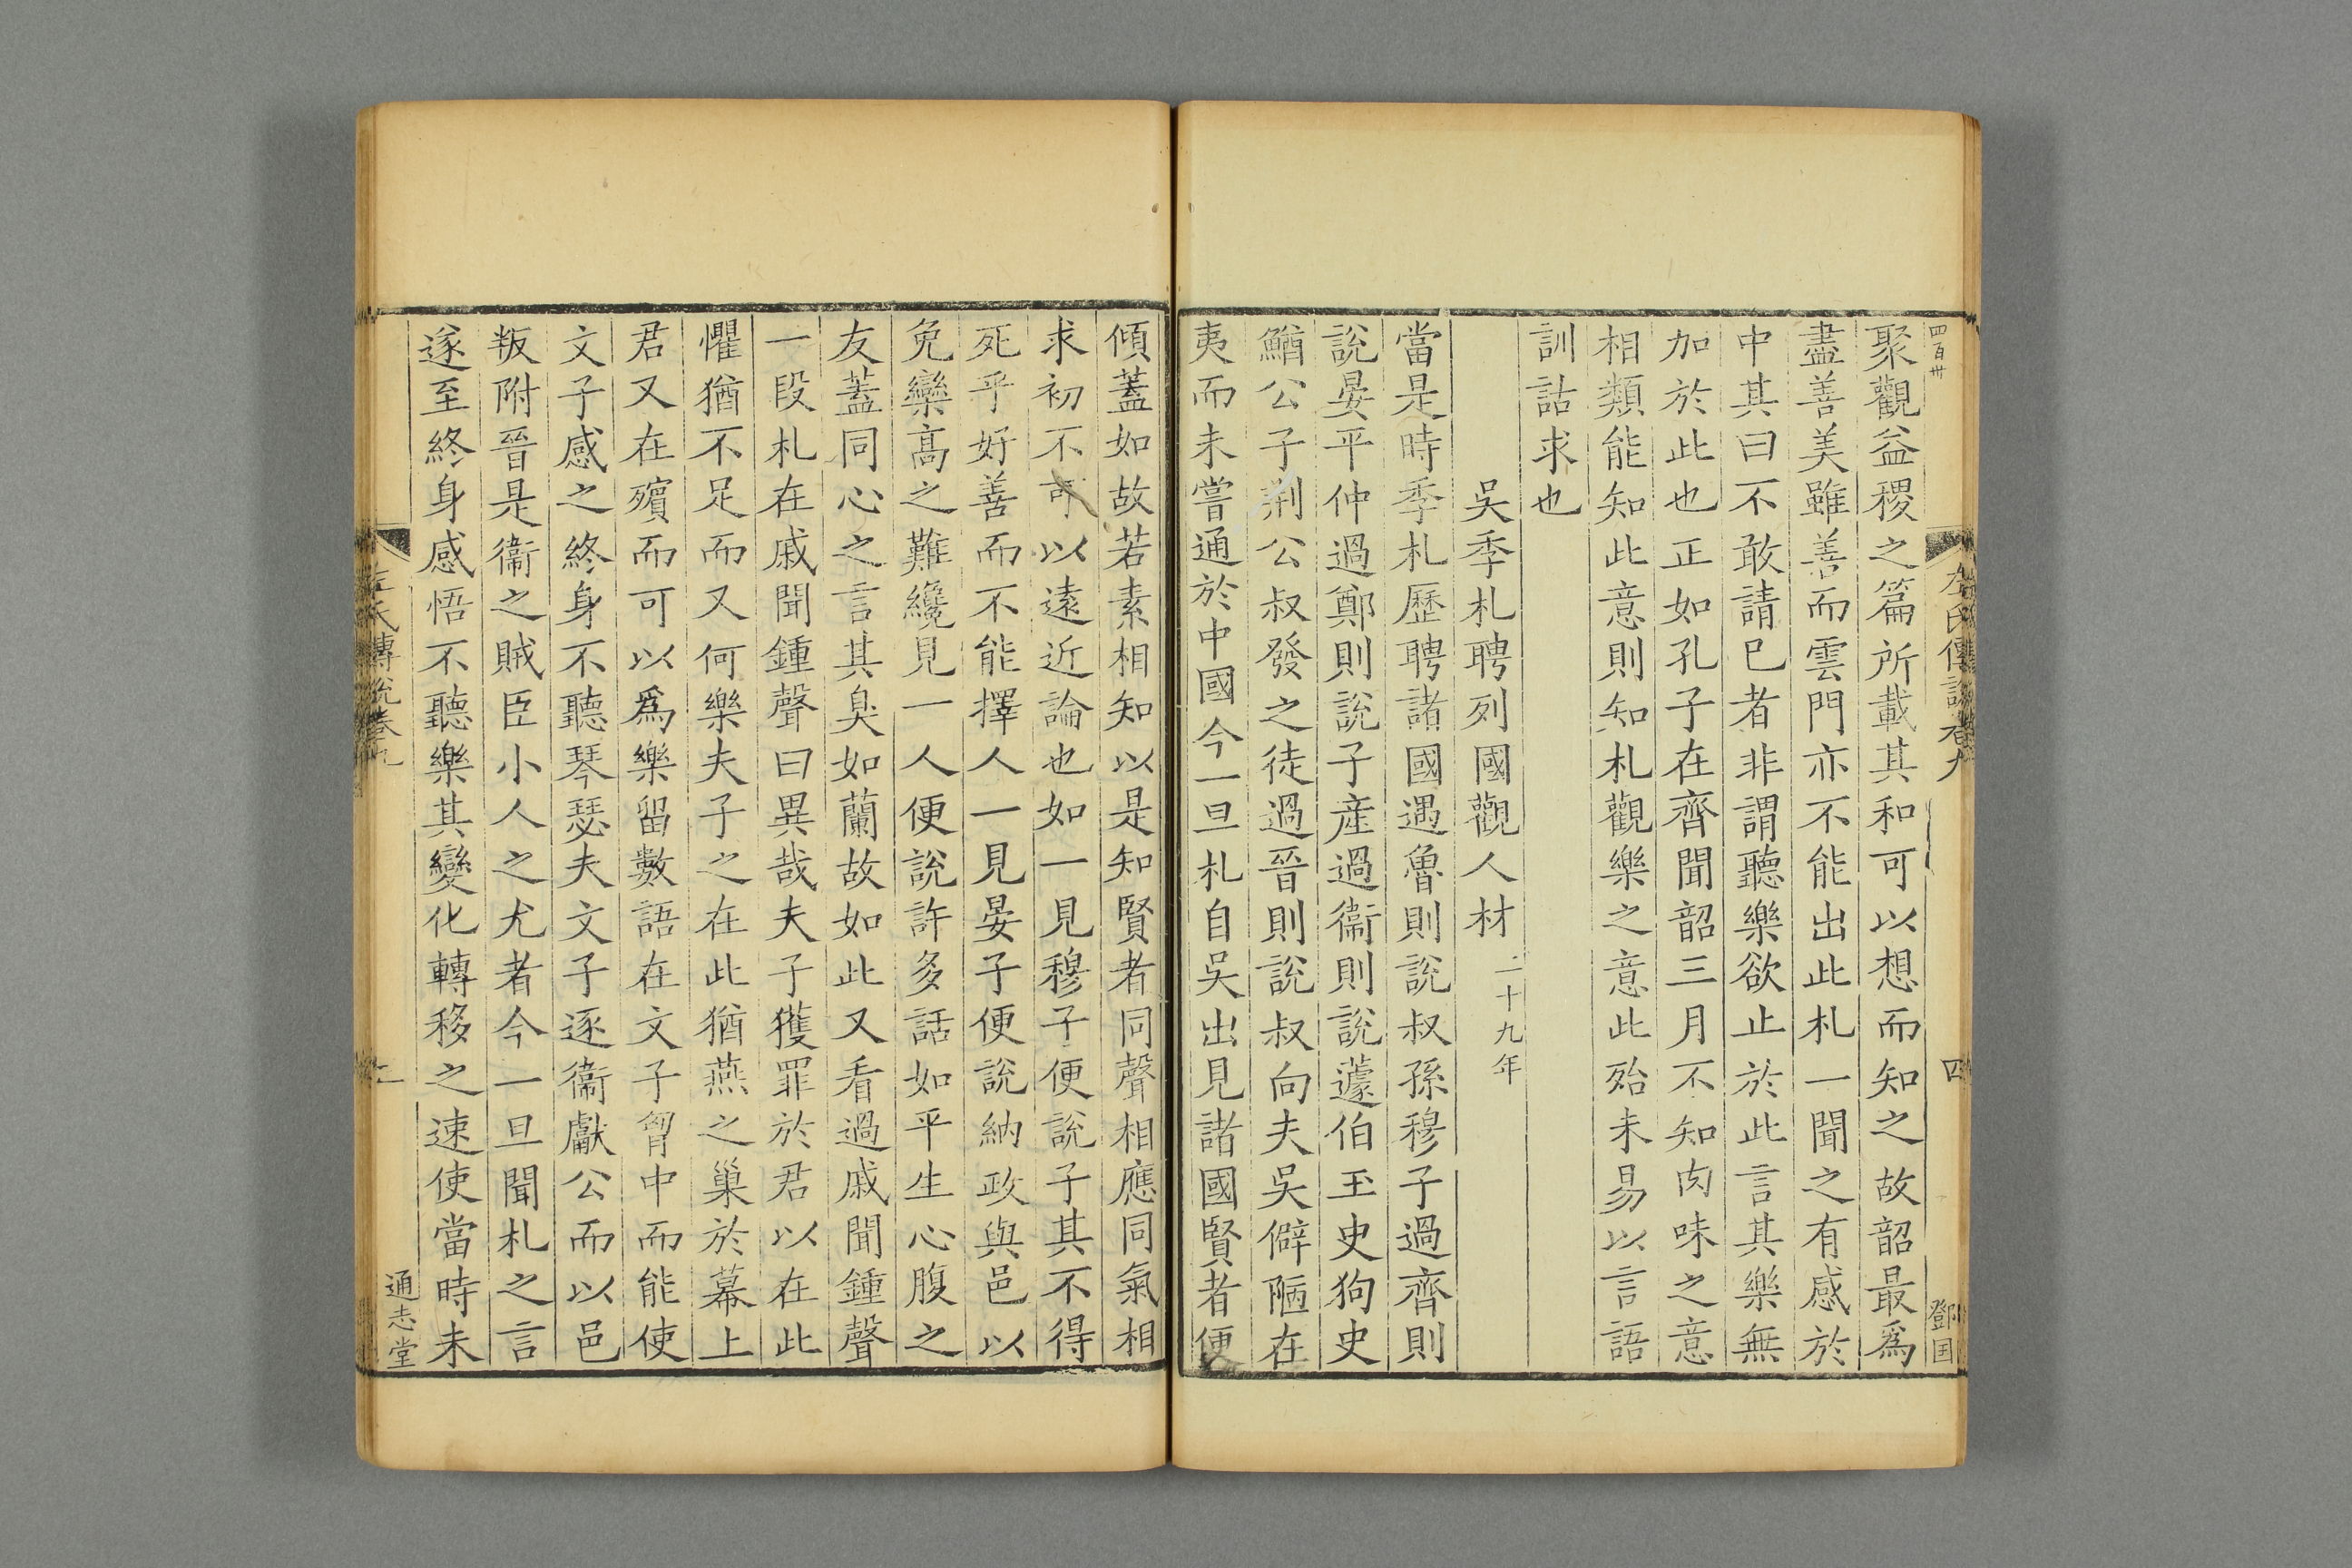 四百卅
左氏傳說卷九
四
鄧国
聚觀益稷之篇所載其和可以想而知之故韶最爲
盡善美雖善而雲門亦不能出此札一聞之有感於
中其曰不敢請已者非謂聽樂欲止於此言其樂無
加於此也正如孔子在齊聞韶三月不知肉味之意
相類能知此意則知札觀樂之意此殆未易以言語
訓詁求也
吳季札聘列國觀人材 二十九年
當是時季札歷聘諸國遇魯則說叔孫穆子過齊則
說晏平仲過鄭則說子產過衞則說蘧伯玉史狗史
鰌公子荆公叔發之徒過晉則說叔向夫吳僻陋在
夷而未嘗通於中國今一旦札自吳出見諸國賢者便
傾蓋如故若素相知以是知賢者同聲相應同氣相
求初不可以遠近論也如一見穆子便說子其不得
死乎好善而不能擇人一見晏子便說納政與邑以
免欒高之難纔見一人便說許多話如平生心腹之
友蓋同心之言其臭如蘭故如此又看過戚聞鍾聲
一段札在戚聞鍾聲曰異哉夫子獲罪於君以在此
懼猶不足而又何樂夫子之在此猶燕之巢於幕上
君又在殯而可以爲樂留數語在文子胷中而能使
文子感之終身不聽琴瑟夫文子逐衞獻公而以邑
叛附晉是衞之賊臣小人之尤者今一旦聞札之言
遂至終身感悟不聽樂其變化轉移之速使當時未
左氏傳說卷九
通志堂